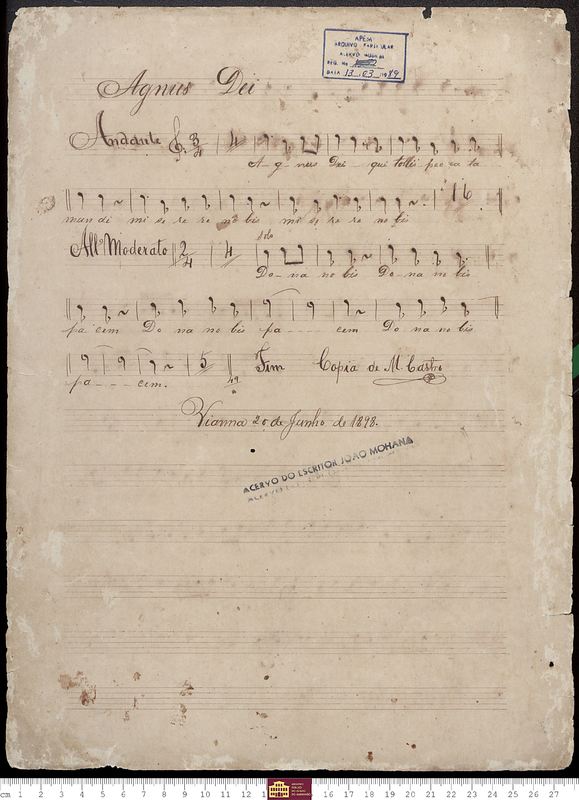 APESA
ARQUIVO PARTICULAR
ACERVO
REG. No
DATA 13.03.1989
Agnus Dei
Andante 3/4 4
A - g - nus Dei - qui tollis pec ca ta
16
mun di mi se re re no bis mi se re re no bis
All.º Moderato 2/4 4 solo
Do - na no bis Do - na no bis
pa cem Do na no bis pa - - - - cem Do na no bis
5 49 Fim Copia de M. Castro
pa - - - cem.
Vianna 20 de Junho de 1898.
ACERVO DO ESCRITOR JOÃO MOHANA
cm 1 2 3 4 5 6 7 8 9 10 11 12 13 16 17 18 19 20 21 22 23 24 25 26 27